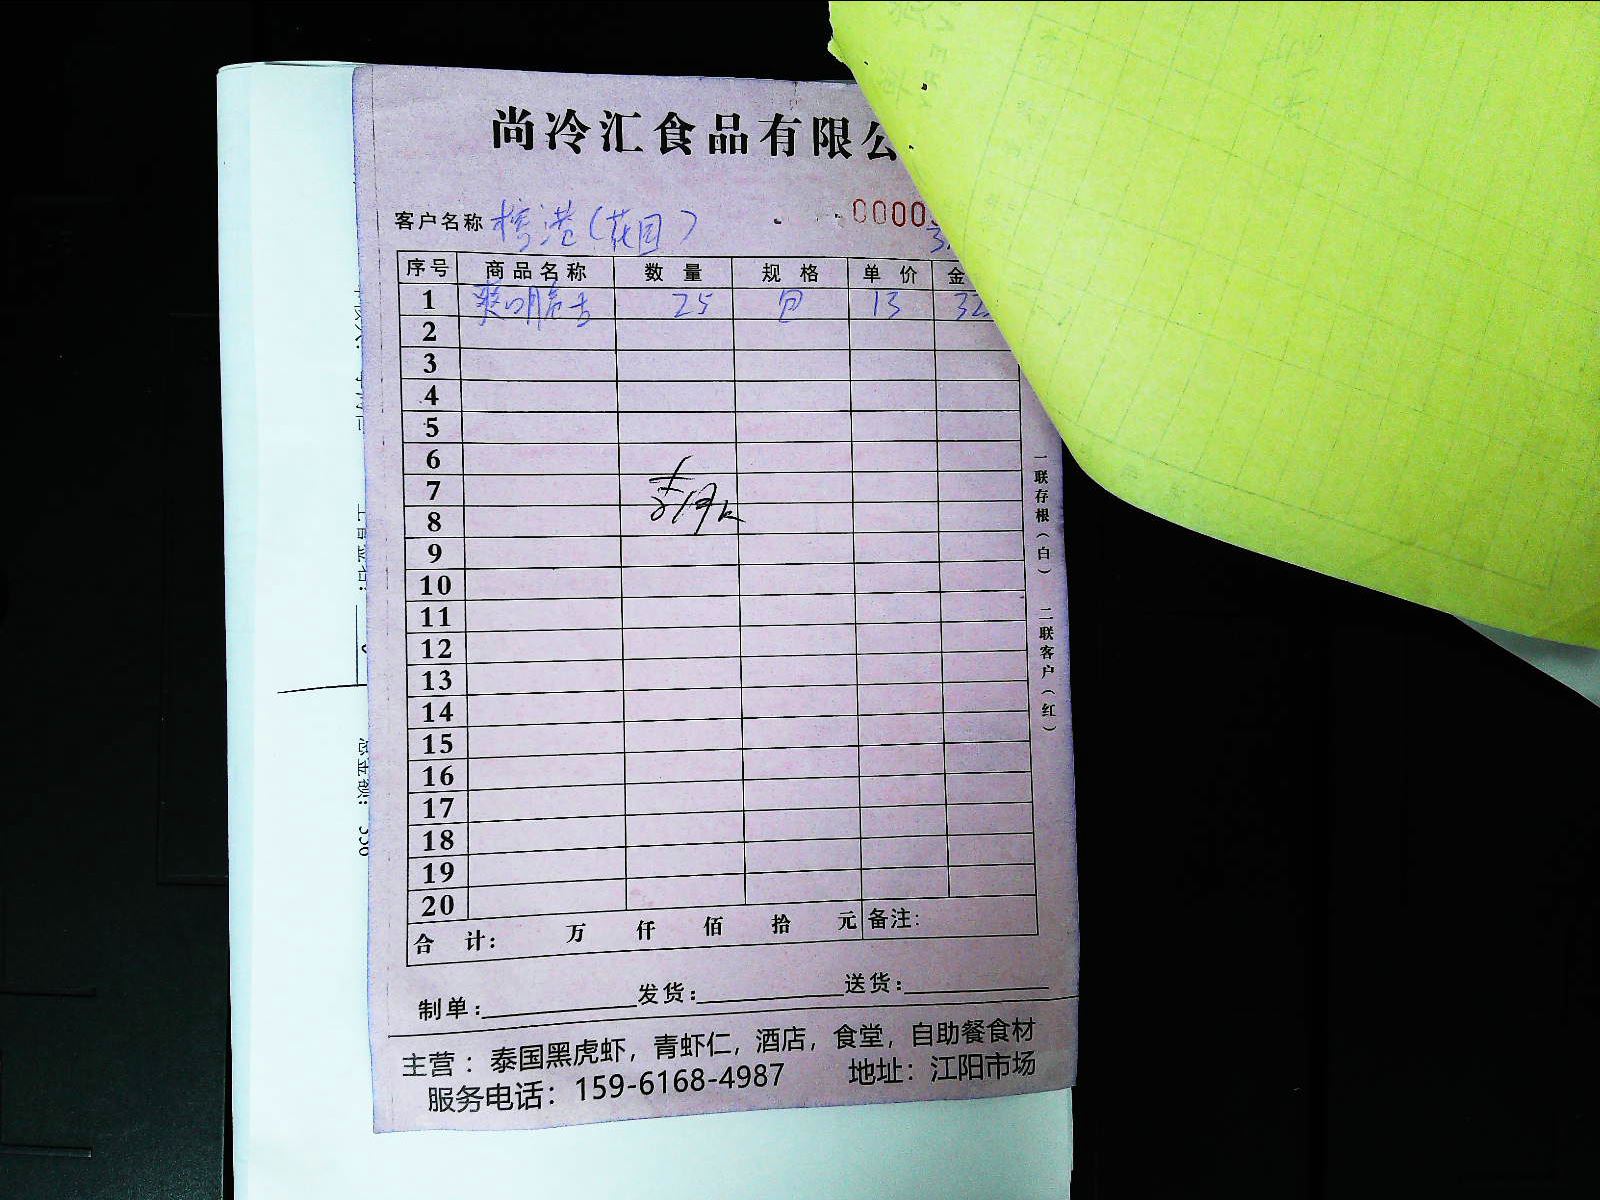 尚冷汇食品有限公
客户名称 樽港(花园)
0000
序号 商品名称 数量 规格 单价 金
1 25 包 13 32
2
3
4
5
6
7
8
9
10
11
12
13
14
15
16
17
18
19
20
合计: 万 仟 佰 拾 元 备注:
制单: 发货: 送货:
主营：泰国黑虎虾，青虾仁，酒店，食堂，自助餐食材
服务电话：159-6168-4987 地址：江阳市场
一联存根(白) 二联客户(红)
总金额: